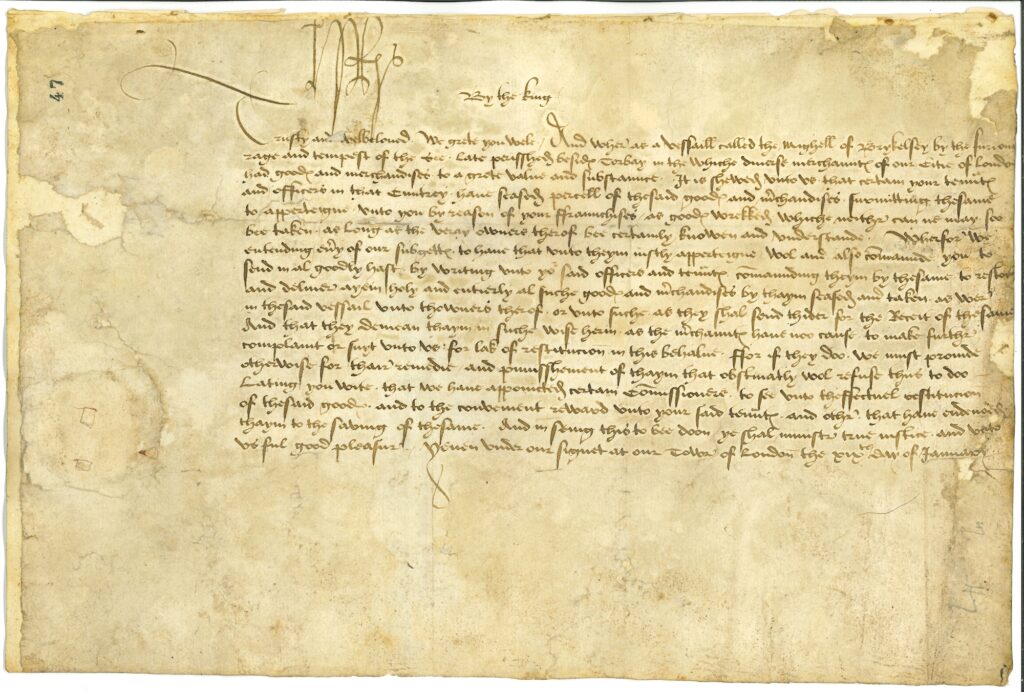 47
By the king
Trusty and welbeloved We grete you wele / And wher as a vessaill called the Mighell of Brykelsey by the furious
rage and tempest of the See late perisshed beside Torbay in the whiche diverse merchauntz of our Citie of London
had goodes and merchandises to a grete value and substaunce . It is shewed unto us that certain your tenntz
and officers in that Cuntrey have seased percell of thesaid goodes and mchandises surmitting thesame
to apperteigne unto you by reason of your ffraunchises as goodes wrekked whiche neither can ne may soo
bee taken as long as the veray owners therof bee certainly knowen and understande . Wherfor We
entending evy of our subgettz to have that unto theym justly apperteigne wol and also comaunde you to
send in al goodly hast by writing unto ye said officers and tenntz comaunding theym by thesame to restore
and deliver ayein holy and entierly al suche goodes and mchandises by thaym seased and taken as wer
in thesaid vessail unto thowners therof or unto suche as they shal send thider for the Receit of thesame
And that they demean thaym in suche wise herin as the mchauntz have noo cause to make further
complaint or suyt unto us for lak of restitucion in this behalve ffor if they doo we must provide
otherwise for thair remedie and punisshement of thaym that obstinatly wol refuse thus to doo
Lating you wite that we have appointed certain Comissioners to see unto theffectuel restitucion
of thesaid goodes and to the convenient reward unto your said tenntz and other that have endevored
thaym to the saving of thesame . And in seing this to bee doon ye shal ministr true justice and unto
us ful good pleasur . Yeven under our signet at our Towr of London the xix day of January